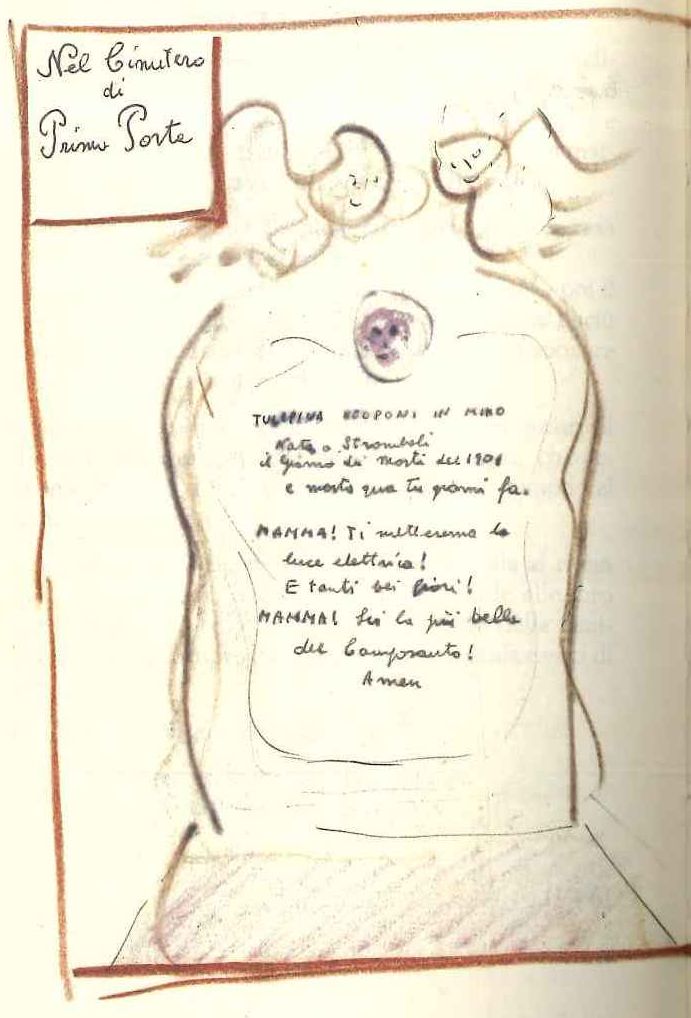 Nel Cimitero
di
Prima Porta
IN MIRO
Nata a Stromboli
il Giorno dei Morti del 1901
e morta qua tre giorni fa.
MAMMA! Ti metteremo la
luce elettrica!
E tanti bei fiori!
MAMMA! Sei la più bella
del Camposanto!
Amen